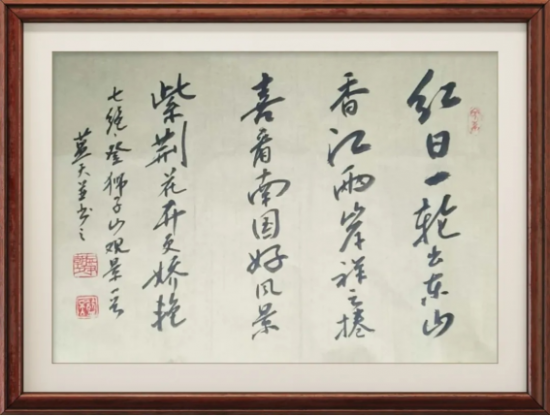 红日一轮出东山
香江两岸祥云捲
喜看南国好风景
紫荆花开更娇艳
七绝·登狮子山观景
天书之